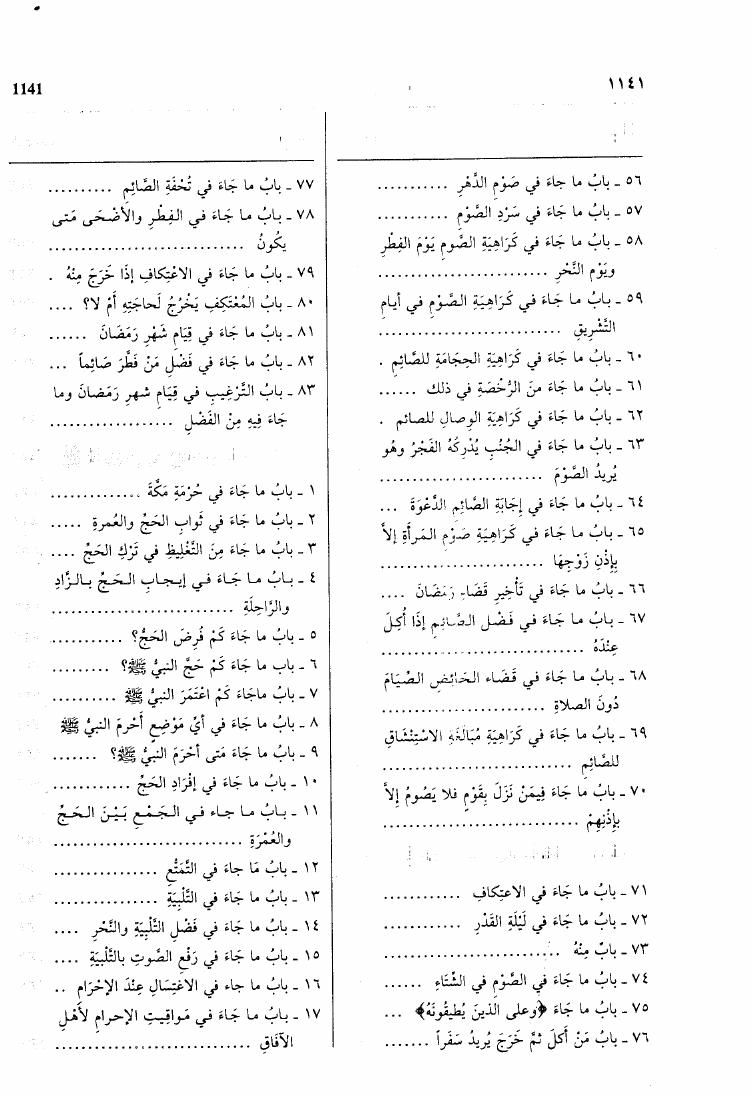 1141
١١٤١
٥٦ ـ بابُ ما جاءَ في صَوْمِ الدَّهْرِ ...........
٥٧ ـ بابُ ما جَاءَ في سَرْدِ الصَّوْمِ ...........
٥٨ ـ بابُ ما جَاءَ في كَرَاهِيَةِ الصَّومِ يَوْمَ الفِطْرِ
ويَوْمِ النَّحْرِ ...........................
٥٩ ـ بابُ ما جَاءَ في كَرَاهِيَةِ الصَّوْمِ في أيامِ
التَّشْرِيقِ ............................
٦٠ ـ بابُ ما جَاءَ في كَرَاهِيَةِ الحِجَامَةِ للصَّائِمِ .
٦١ ـ بابُ ما جَاءَ منَ الرُّخصَةِ في ذلك ......
٦٢ ـ بابُ ما جَاءَ في كَرَاهِيَةِ الوِصالِ للصائمِ .
٦٣ ـ بابُ ما جَاءَ في الجُنُبِ يُدْرِكُهُ الفَجْرُ وهُو
يُرِيدُ الصَّوْمَ .........................
٦٤ ـ بابُ ما جَاءَ في إِجَابَةِ الصَّائِمِ الدَّعْوَةَ ...
٦٥ ـ بابُ ما جَاءَ في كَرَاهِيَةِ صَوْمِ المَرأَةِ إلاَّ
بإِذْنِ زَوْجِهَا .........................
٦٦ ـ بابُ ما جَاءَ في تَأْخِيرِ قَضَاءِ رَمَضَانَ ....
٦٧ ـ بابُ ما جَاءَ في فَضْلِ الصَّائِمِ إذَا أُكِلَ
عِنْدَهُ ...............................
٦٨ ـ بابُ ما جَاءَ في قَضَاءِ الحَائِضِ الصِّيَامَ
دُونَ الصلاةِ .........................
٦٩ ـ بابُ ما جَاءَ في كَرَاهِيَةِ مُبَالَغَةِ الاسْتِنْشَاقِ
للصَّائِمِ .............................
٧٠ ـ بابُ ما جَاءَ فِيمَنْ نَزَلَ بِقَوْمٍ فلا يَصُومُ إلاَّ
بإِذْنِهِمْ .............................
٧١ ـ بابُ ما جَاءَ في الاعتِكافِ ............
٧٢ ـ بابُ ما جَاءَ في لَيْلَةِ القَدْرِ ............
٧٣ ـ بابٌ مِنْهُ .........................
٧٤ ـ بابُ ما جَاءَ في الصَّوْمِ في الشِّتَاءِ ......
٧٥ ـ بابُ ما جَاءَ ﴿وعلى الَّذِينَ يُطِيقُونَهُ﴾ ...
٧٦ ـ بابُ مَنْ أَكَلَ ثُمَّ خَرَجَ يُرِيدُ سَفَراً .......
٧٧ ـ بابُ ما جَاءَ في تُحْفَةِ الصَّائِمِ ..........
٧٨ ـ بابُ ما جَاءَ في الفِطْرِ والأَضْحَى مَتى
يكُونُ ............................
٧٩ ـ بابُ ما جَاءَ في الاعْتِكافِ إذَا خَرَجَ مِنْهُ .
٨٠ ـ بابُ المُعْتَكِفِ يَخْرُجُ لَحاجَتِهِ أمْ لا؟ ....
٨١ ـ بابُ ما جَاءَ في قِيَامِ شَهْرِ رَمَضَانَ ......
٨٢ ـ بابُ ما جَاءَ في فَضْلِ مَنْ فَطَّرَ صَائِماً ...
٨٣ ـ بابُ التَّرْغِيبِ في قِيَامِ شهرِ رَمَضانَ وما
جَاءَ فِيهِ مِنَ الفَضْلِ ..................
١ ـ بابُ ما جَاءَ في حُرْمَةِ مَكَّةَ .............
٢ ـ بابُ ما جَاءَ في ثَوابِ الحَجِّ والعُمرةِ .....
٣ ـ بابُ ما جَاءَ مِنَ التَّغْلِيظِ في تَرْكِ الحَجِّ ....
٤ ـ بابُ ما جَاءَ في إيجابِ الحَجِّ بالزَّادِ
والرَّاحِلَةِ ...........................
٥ ـ بابُ ما جَاءَ كَمْ فُرِضَ الحَجُّ؟ ...........
٦ ـ بابُ ما جَاءَ كَمْ حَجَّ النبيُّ ﷺ؟ .........
٧ ـ بابُ ماجَاءَ كَمْ اعْتَمَرَ النبيُّ ﷺ ..........
٨ ـ بابُ ما جَاءَ في أيِّ مَوْضِعٍ أَحْرمَ النبيُّ ﷺ
٩ ـ بابُ ما جَاءَ مَتى أحْرَمَ النبيُّ ﷺ؟ .......
١٠ ـ بابُ ما جَاءَ في إفْرَادِ الحَجِّ ............
١١ ـ بابُ ما جاء في الجَمْعِ بَيْنَ الحَجِّ
والعُمْرَةِ ............................
١٢ ـ بابُ مَا جاءَ في التَّمَتُّعِ ...............
١٣ ـ بابُ ما جَاءَ في التَّلْبِيَةِ ...............
١٤ ـ بابُ ما جَاءَ في فَضْلِ التَّلْبِيَةِ والنَّحْرِ ....
١٥ ـ بابُ ما جَاءَ في رَفْعِ الصَّوتِ بالتَّلْبِيَةِ ....
١٦ ـ بابُ ما جاء في الاغْتِسَالِ عِنْدَ الإحْرَامِ ..
١٧ ـ بابُ ما جَاءَ في مَواقِيتِ الإحرامِ لأَهْلِ
الآفَاقِ ............................